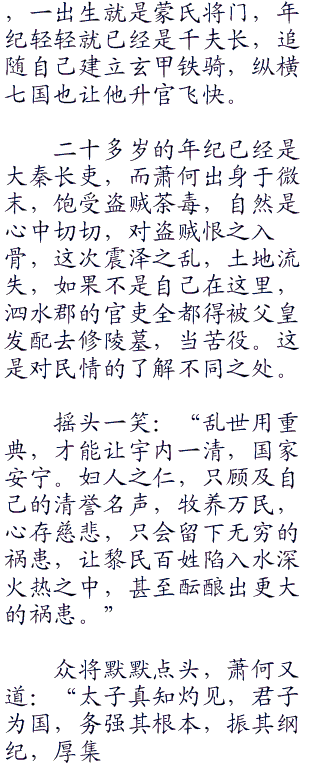 ，一出生就是蒙氏将门，年
纪轻轻就已经是千夫长，追
随自己建立玄甲铁骑，纵横
七国也让他升官飞快。
二十多岁的年纪已经是
大秦长吏，而萧何出身于微
末，饱受盗贼荼毒，自然是
心中切切，对盗贼恨之入
骨，这次震泽之乱，土地流
失，如果不是自己在这里，
泗水郡的官吏全都得被父皇
发配去修陵墓，当苦役。这
是对民情的了解不同之处。
摇头一笑：“乱世用重
典，才能让宇内一清，国家
安宁。妇人之仁，只顾及自
己的清誉名声，牧养万民，
心存慈悲，只会留下无穷的
祸患，让黎民百姓陷入水深
火热之中，甚至酝酿出更大
的祸患。”
众将默默点头，萧何又
道：“太子真知灼见，君子
为国，务强其根本，振其纲
纪，厚集